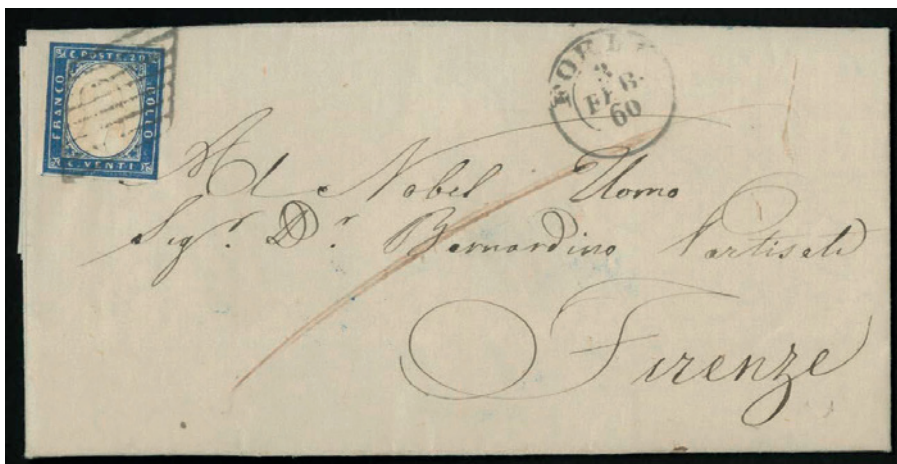 C. POSTE. 20
FRANCO
BOLLO
C. VENTI
FORLI
3
FEB.
60
Al Nobel Uomo
Sigr. Dr. Bernardino
Firenze